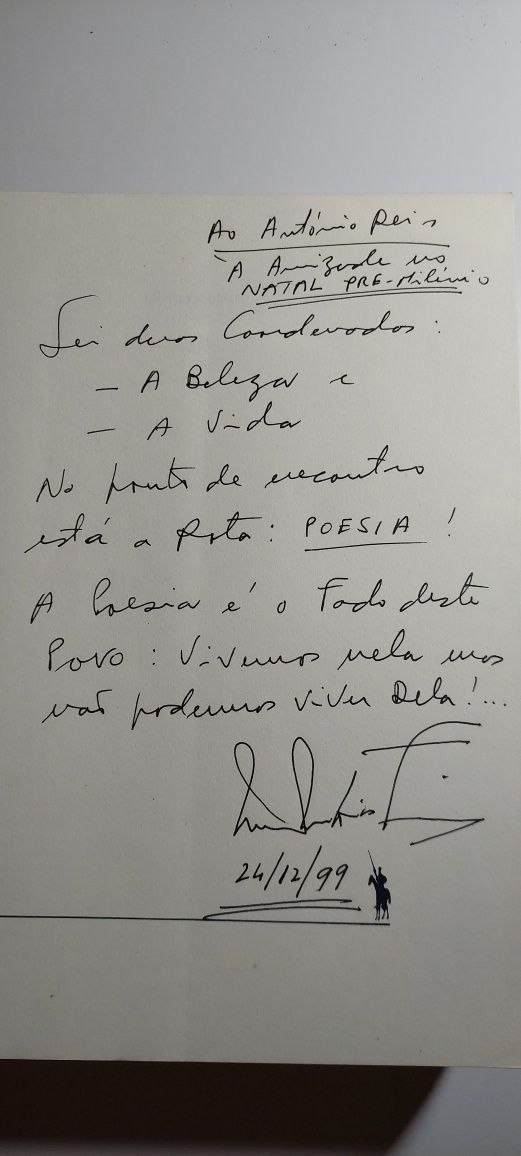 Ao António Reis
À Amizade no
NATAL PRE-Milénio
Sei duas Coordenadas:
– A Beleza e
– A Vida
No ponto de encontro
está a Rota: POESIA!
A Poesia é o Fado deste
Povo: Vivemos nela mas
não podemos viver Dela!...
24/12/99